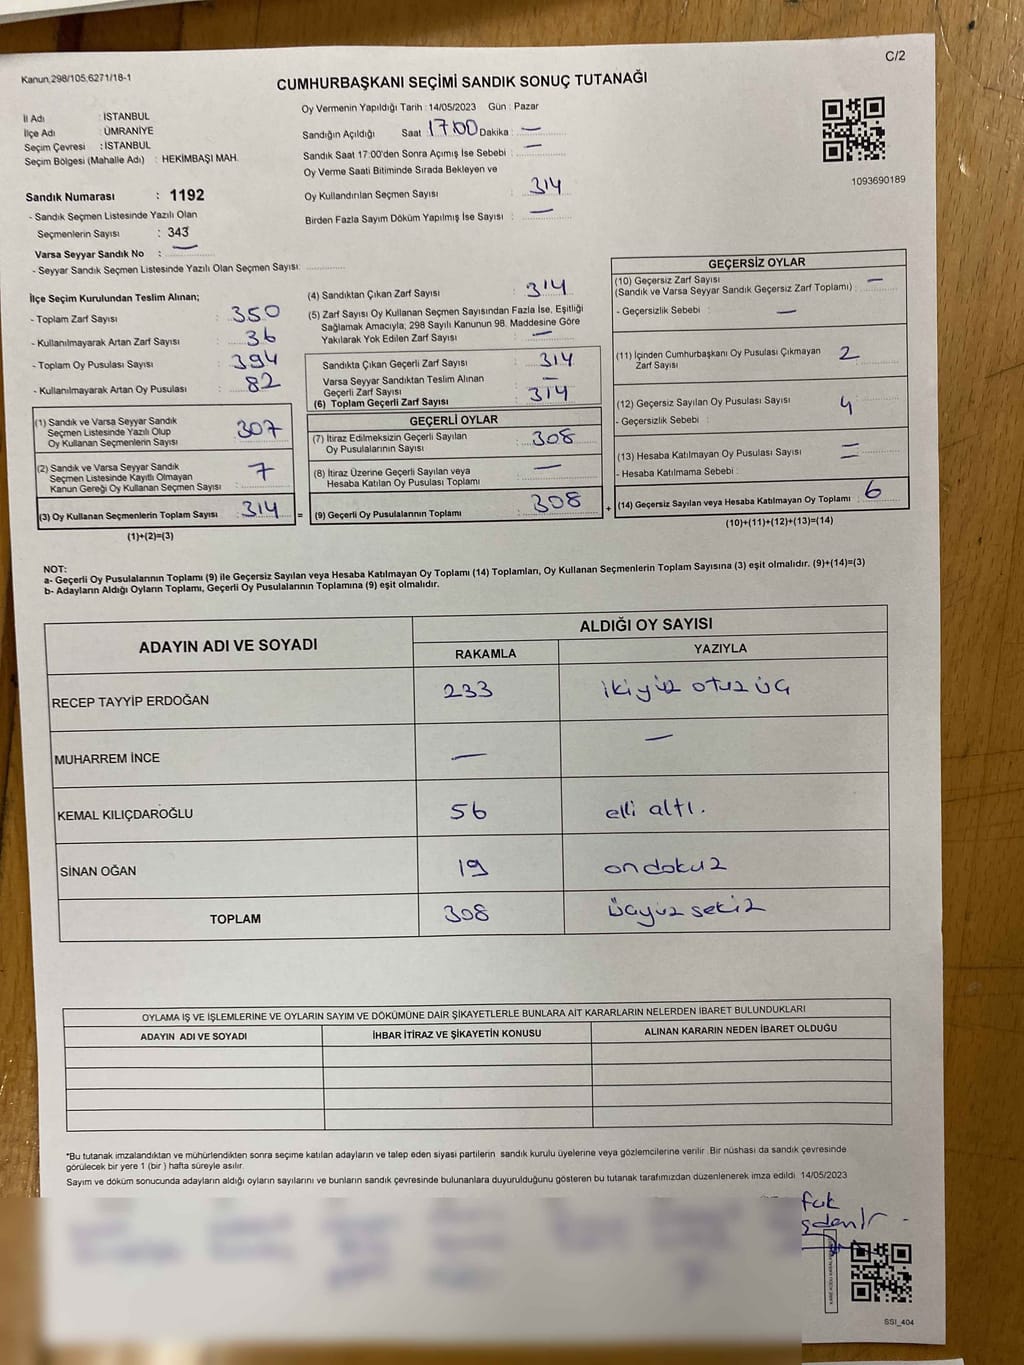 C/2
Kanun.298/105.6271/18-1
CUMHURBAŞKANI SEÇİMİ SANDIK SONUÇ TUTANAĞI
İl Adı : İSTANBUL
İlçe Adı : ÜMRANİYE
Seçim Çevresi : İSTANBUL
Seçim Bölgesi (Mahalle Adı) : HEKİMBAŞI MAH.
Oy Vermenin Yapıldığı Tarih : 14/05/2023 Gün : Pazar
Sandığın Açıldığı Saat 17:00 Dakika : —
Sandık Saat 17:00'den Sonra Açımış İse Sebebi : —
Oy Verme Saati Bitiminde Sırada Bekleyen ve
Oy Kullandırılan Seçmen Sayısı : 314
Birden Fazla Sayım Döküm Yapılmış İse Sayısı : —
1093690189
Sandık Numarası : 1192
- Sandık Seçmen Listesinde Yazılı Olan
Seçmenlerin Sayısı : 343
Varsa Seyyar Sandık No : —
- Seyyar Sandık Seçmen Listesinde Yazılı Olan Seçmen Sayısı:
İlçe Seçim Kurulundan Teslim Alınan;
- Toplam Zarf Sayısı : 350
- Kullanılmayarak Artan Zarf Sayısı : 36
- Toplam Oy Pusulası : 394
- Kullanılmayarak Artan Oy Pusulası : 82
(1) Sandık ve Varsa Seyyar Sandık
Seçmen Listesinde Yazılı Olup
Oy Kullanan Seçmenlerin Sayısı : 307
(2) Sandık ve Varsa Seyyar Sandık
Seçmen Listesinde Kayıtlı Olmayan
Kanun Gereği Oy Kullanan Seçmen Sayısı : 7
(3) Oy Kullanan Seçmenlerin Toplam Sayısı : 314 =
(1)+(2)=(3)
(4) Sandıktan Çıkan Zarf Sayısı : 314
(5) Zarf Sayısı Oy Kullanan Seçmen Sayısından Fazla İse, Eşitliği
Sağlamak Amacıyla; 298 Sayılı Kanunun 98. Maddesine Göre
Yakılarak Yok Edilen Zarf Sayısı : —
Sandıkta Çıkan Geçerli Zarf Sayısı : 314
Varsa Seyyar Sandıktan Teslim Alınan
Geçerli Zarf Sayısı : —
(6) Toplam Geçerli Zarf Sayısı : 314
GEÇERLİ OYLAR
(7) İtiraz Edilmeksizin Geçerli Sayılan
Oy Pusulalarının Sayısı : 308
(8) İtiraz Üzerine Geçerli Sayılan veya
Hesaba Katılan Oy Pusulası Toplamı : —
(9) Geçerli Oy Pusulalarının Toplamı : 308 +
GEÇERSİZ OYLAR
(10) Geçersiz Zarf Sayısı
(Sandık ve Varsa Seyyar Sandık Geçersiz Zarf Toplamı) : —
- Geçersizlik Sebebi : —
(11) İçinden Cumhurbaşkanı Oy Pusulası Çıkmayan
Zarf Sayısı : 2
(12) Geçersiz Sayılan Oy Pusulası Sayısı : 4
- Geçersizlik Sebebi :
(13) Hesaba Katılmayan Oy Pusulası Sayısı : —
- Hesaba Katılmama Sebebi : —
(14) Geçersiz Sayılan veya Hesaba Katılmayan Oy Toplamı : 6
(10)+(11)+(12)+(13)=(14)
NOT:
a- Geçerli Oy Pusulalarının Toplamı (9) ile Geçersiz Sayılan veya Hesaba Katılmayan Oy Toplamı (14) Toplamları, Oy Kullanan Seçmenlerin Toplam Sayısına (3) eşit olmalıdır. (9)+(14)=(3)
b- Adayların Aldığı Oyların Toplamı, Geçerli Oy Pusulalarının Toplamına (9) eşit olmalıdır.
ADAYIN ADI VE SOYADI
ALDIĞI OY SAYISI
RAKAMLA YAZIYLA
RECEP TAYYİP ERDOĞAN 233 iki yüz otuz üç
MUHARREM İNCE — —
KEMAL KILIÇDAROĞLU 56 elli altı.
SİNAN OĞAN 19 on dokuz
TOPLAM 308 üçyüz sekiz
OYLAMA İŞ VE İŞLEMLERİNE VE OYLARIN SAYIM VE DÖKÜMÜNE DAİR ŞİKAYETLERLE BUNLARA AİT KARARLARIN NELERDEN İBARET BULUNDUKLARI
ADAYIN ADI VE SOYADI İHBAR İTİRAZ VE ŞİKAYETİN KONUSU ALINAN KARARIN NEDEN İBARET OLDUĞU
*Bu tutanak imzalandıktan ve mühürlendikten sonra seçime katılan adayların ve talep eden siyasi partilerin sandık kurulu üyelerine veya gözlemcilerine verilir. Bir nüshası da sandık çevresinde
görülecek bir yere 1 (bir ) hafta süreyle asılır.
Sayım ve döküm sonucunda adayların aldığı oyların sayılarını ve bunların sandık çevresinde bulunanlara duyurulduğunu gösteren bu tutanak tarafımızdan düzenlenerek imza edildi 14/05/2023
SSI_404